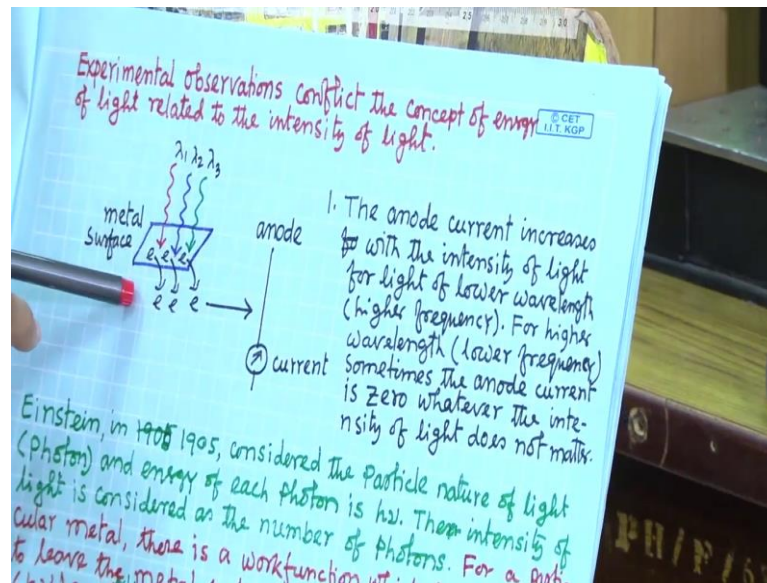 Experimental observations conflict the concept of energy
of light related to the intensity of light.
© CET
I.I.T. KGP
λ1 λ2 λ3
metal
surface
e e e
e e e
anode
current
1. The anode current increases
with the intensity of light
for light of lower wavelength
(higher frequency). For higher
wavelength (lower frequency)
sometimes the anode current
is zero whatever the inte-
nsity of light does not matter.
Einstein, in 1905, considered the particle nature of light
(Photon) and energy of each photon is hν. The intensity of
light is considered as the number of photons. For a parti
cular metal, there is a workfunction
to leave the metal
PH/F/6